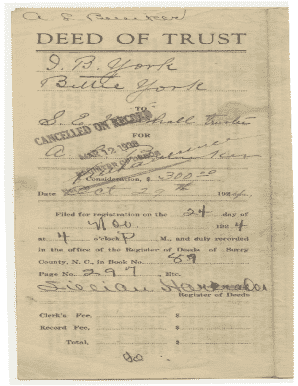 DEED OF TRUST
J. B. York
Bettie York
TO
S. E. Marshall Trustee
CANCELLED ON RECORD
FOR
A
Consideration, $ 200.00
Date Oct 29th 1924
Filed for registration on the 24 day of
Nov 1924
at 4 o'clock P M., and duly recorded
in the office of the Register of Deeds of Surry
County, N. C., in Book No. 89
Page No. 297, Etc.
Register of Deeds
Clerk's Fee, $
Record Fee, $
Total, $